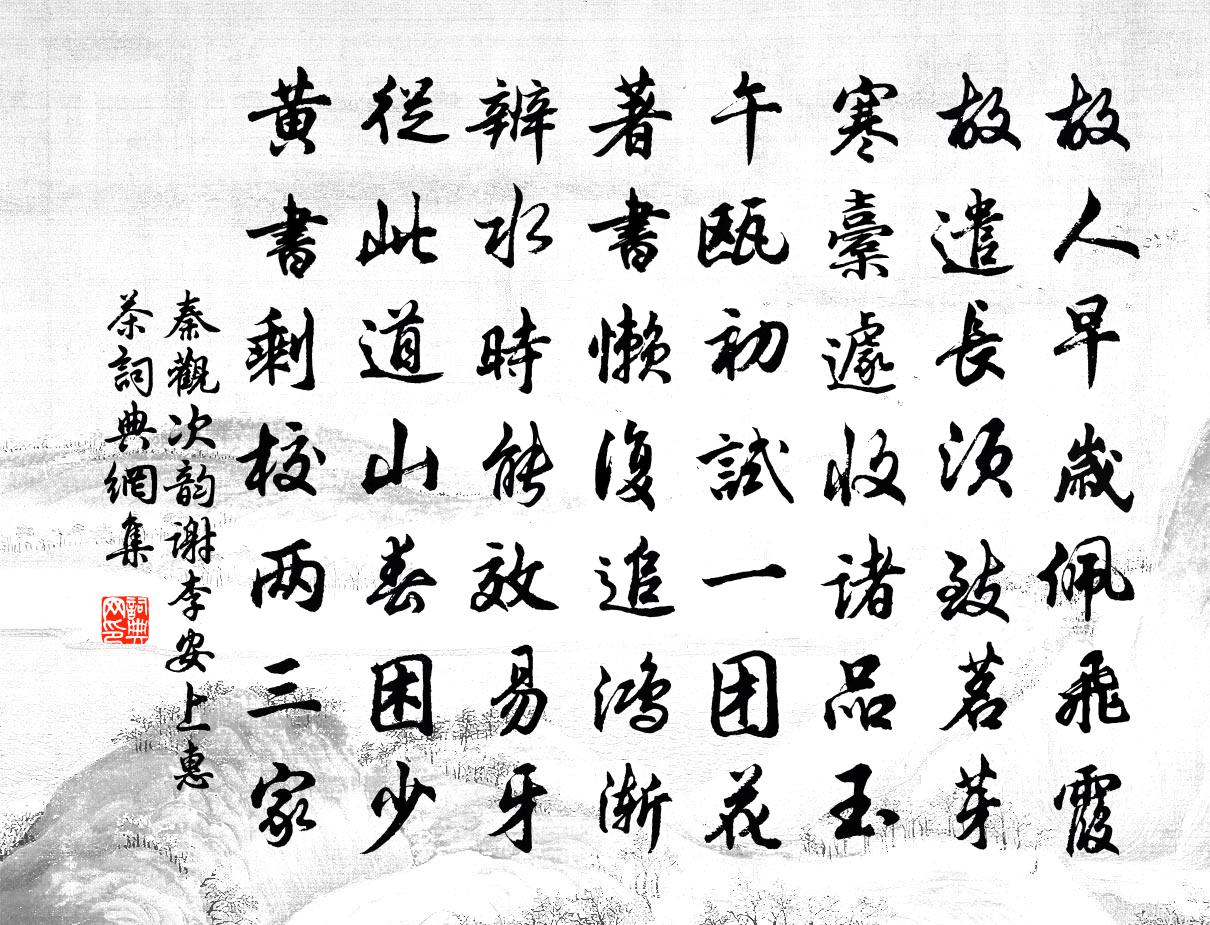 故人早歲佩飛霞
故遣長須致茗芽
寒橐遽收諸品玉
午甌初試一团花
著書懶復追鴻漸
辨水時能效易牙
從此道山春困少
黄書剩校两三家
秦觀次韵谢李安上惠
茶詞典網集
詞典網印